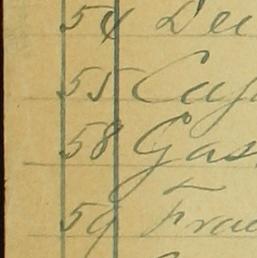 54 Deu
55 Caj
58 Gas
59 Frau